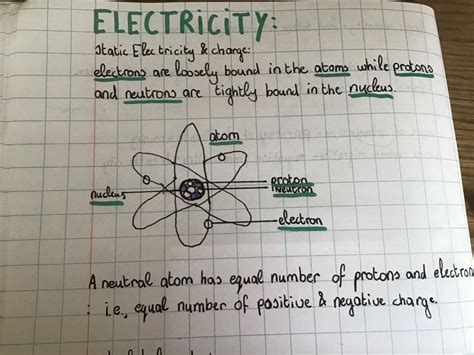 ELECTRICITY:
Static Electricity & charge:
electrons are loosely bound in the atoms while protons
and neutrons are tightly bound in the nucleus.
atom
proton
nucleus
Neutron
electron
A neutral atom has equal number of protons and electron
: i.e., equal number of positive & negative charge.